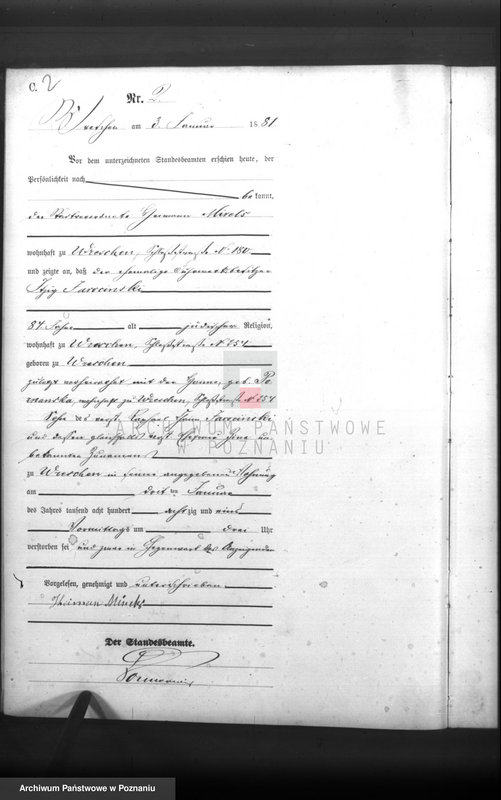 C. 2
Nr. 2.
Wreschen am 3. Januar 1881
Vor dem unterzeichneten Standesbeamten erschien heute, der
Persönlichkeit nach
bekannt,
der Stadtverordnete Hermann
wohnhaft zu Wreschen, Schloßstraße № 180
und zeigte an, daß der ehemalige Fuhrwerksbesitzer
Itzig Jarecinski
84 Jahre alt jüdischer Religion,
wohnhaft zu Wreschen, Schloßstraße № 254
geboren zu Wreschen
zuletzt verheirathet mit der Hanne, geb. Po
wohnhaft zu Wreschen, Schloßstraße № 254
Sohn des verst.
und dessen gleichfalls verst. un
bekannten Zunamens
zu Wreschen in seiner angegebenen Wohnung
am dritten Januar
des Jahres tausend acht hundert achtzig und eins
Vormittags um drei Uhr
verstorben sei und zwar in Gegenwart des Anzeigenden
Vorgelesen, genehmigt und unterschrieben
Herman
Der Standesbeamte.
ARCHIWUM PAŃSTWOWE
W POZNANIU
Archiwum Państwowe w Poznaniu